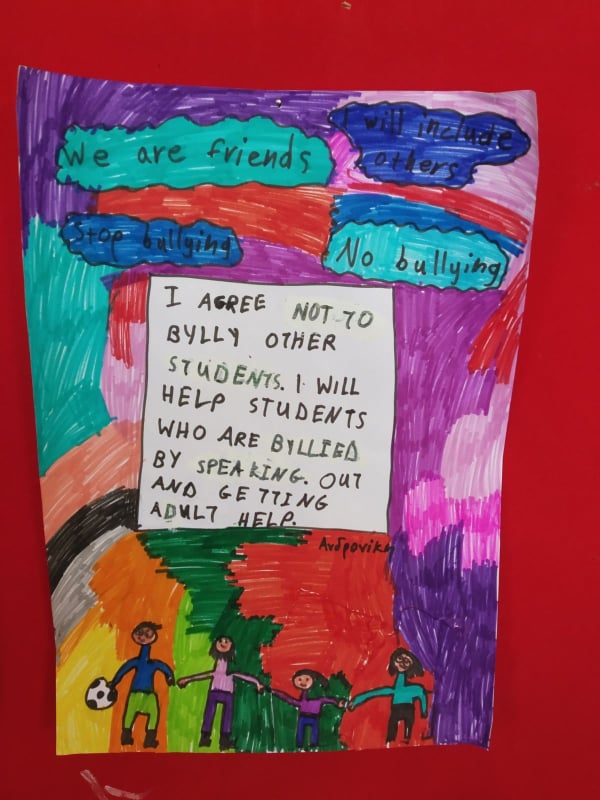 We are friends
I will include
others
Stop bullying
No bullying
I AGREE NOT TO
BYLLY OTHER
STUDENTS. I WILL
HELP STUDENTS
WHO ARE BYLLIED
BY SPEAKING. OUT
AND GETTING
ADULT HELP.
Ανδρονίκη